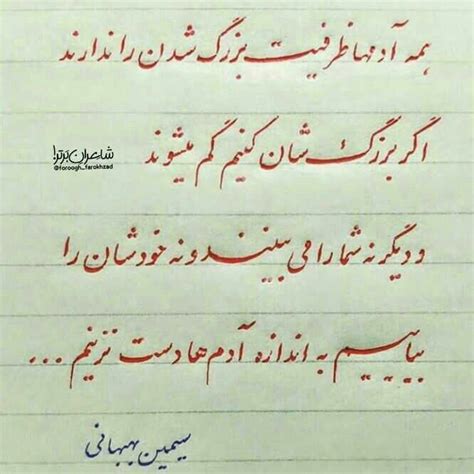 همه آدمها ظرفیت بزرگ شدن را ندارند
شاعران برتر!
@foroogh_farokhzad
اگر بزرگ شان کنیم گم میشوند
و دیگر نه شما را می بینند و نه خودشان را
بیاییم به اندازه آدم ها دست نزنیم ...
سیمین بهبهانی